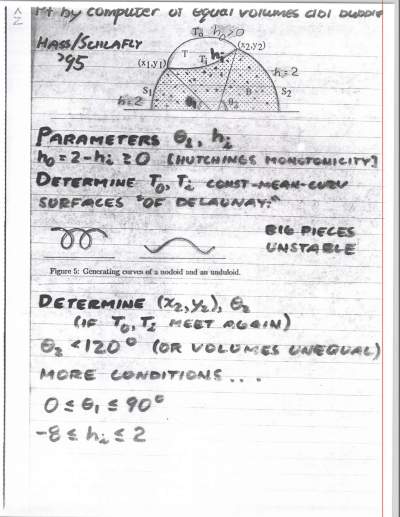 Pf by computer of equal volumes dbl bubble
HASS/SCHLAFLY
'95
T₀ h₀>0
(x₂,y₂)
(x₁,y₁)
T
Tᵢ
hᵢ
h=2
S₁
h=2
θ₁
θ₂
B
S₂
PARAMETERS θ₁, hᵢ
h₀ = 2-hᵢ ≥ 0 (HUTCHINGS MONOTONICITY)
DETERMINE T₀, Tᵢ CONST-MEAN-CURV
SURFACES "OF DELAUNAY:"
BIG PIECES
UNSTABLE
Figure 5: Generating curves of a nodoid and an unduloid.
DETERMINE (x₂,y₂), θ₂
(IF T₀, Tᵢ MEET AGAIN)
θ₂ < 120° (OR VOLUMES UNEQUAL)
MORE CONDITIONS...
0 ≤ θ₁ ≤ 90°
-8 ≤ hᵢ ≤ 2